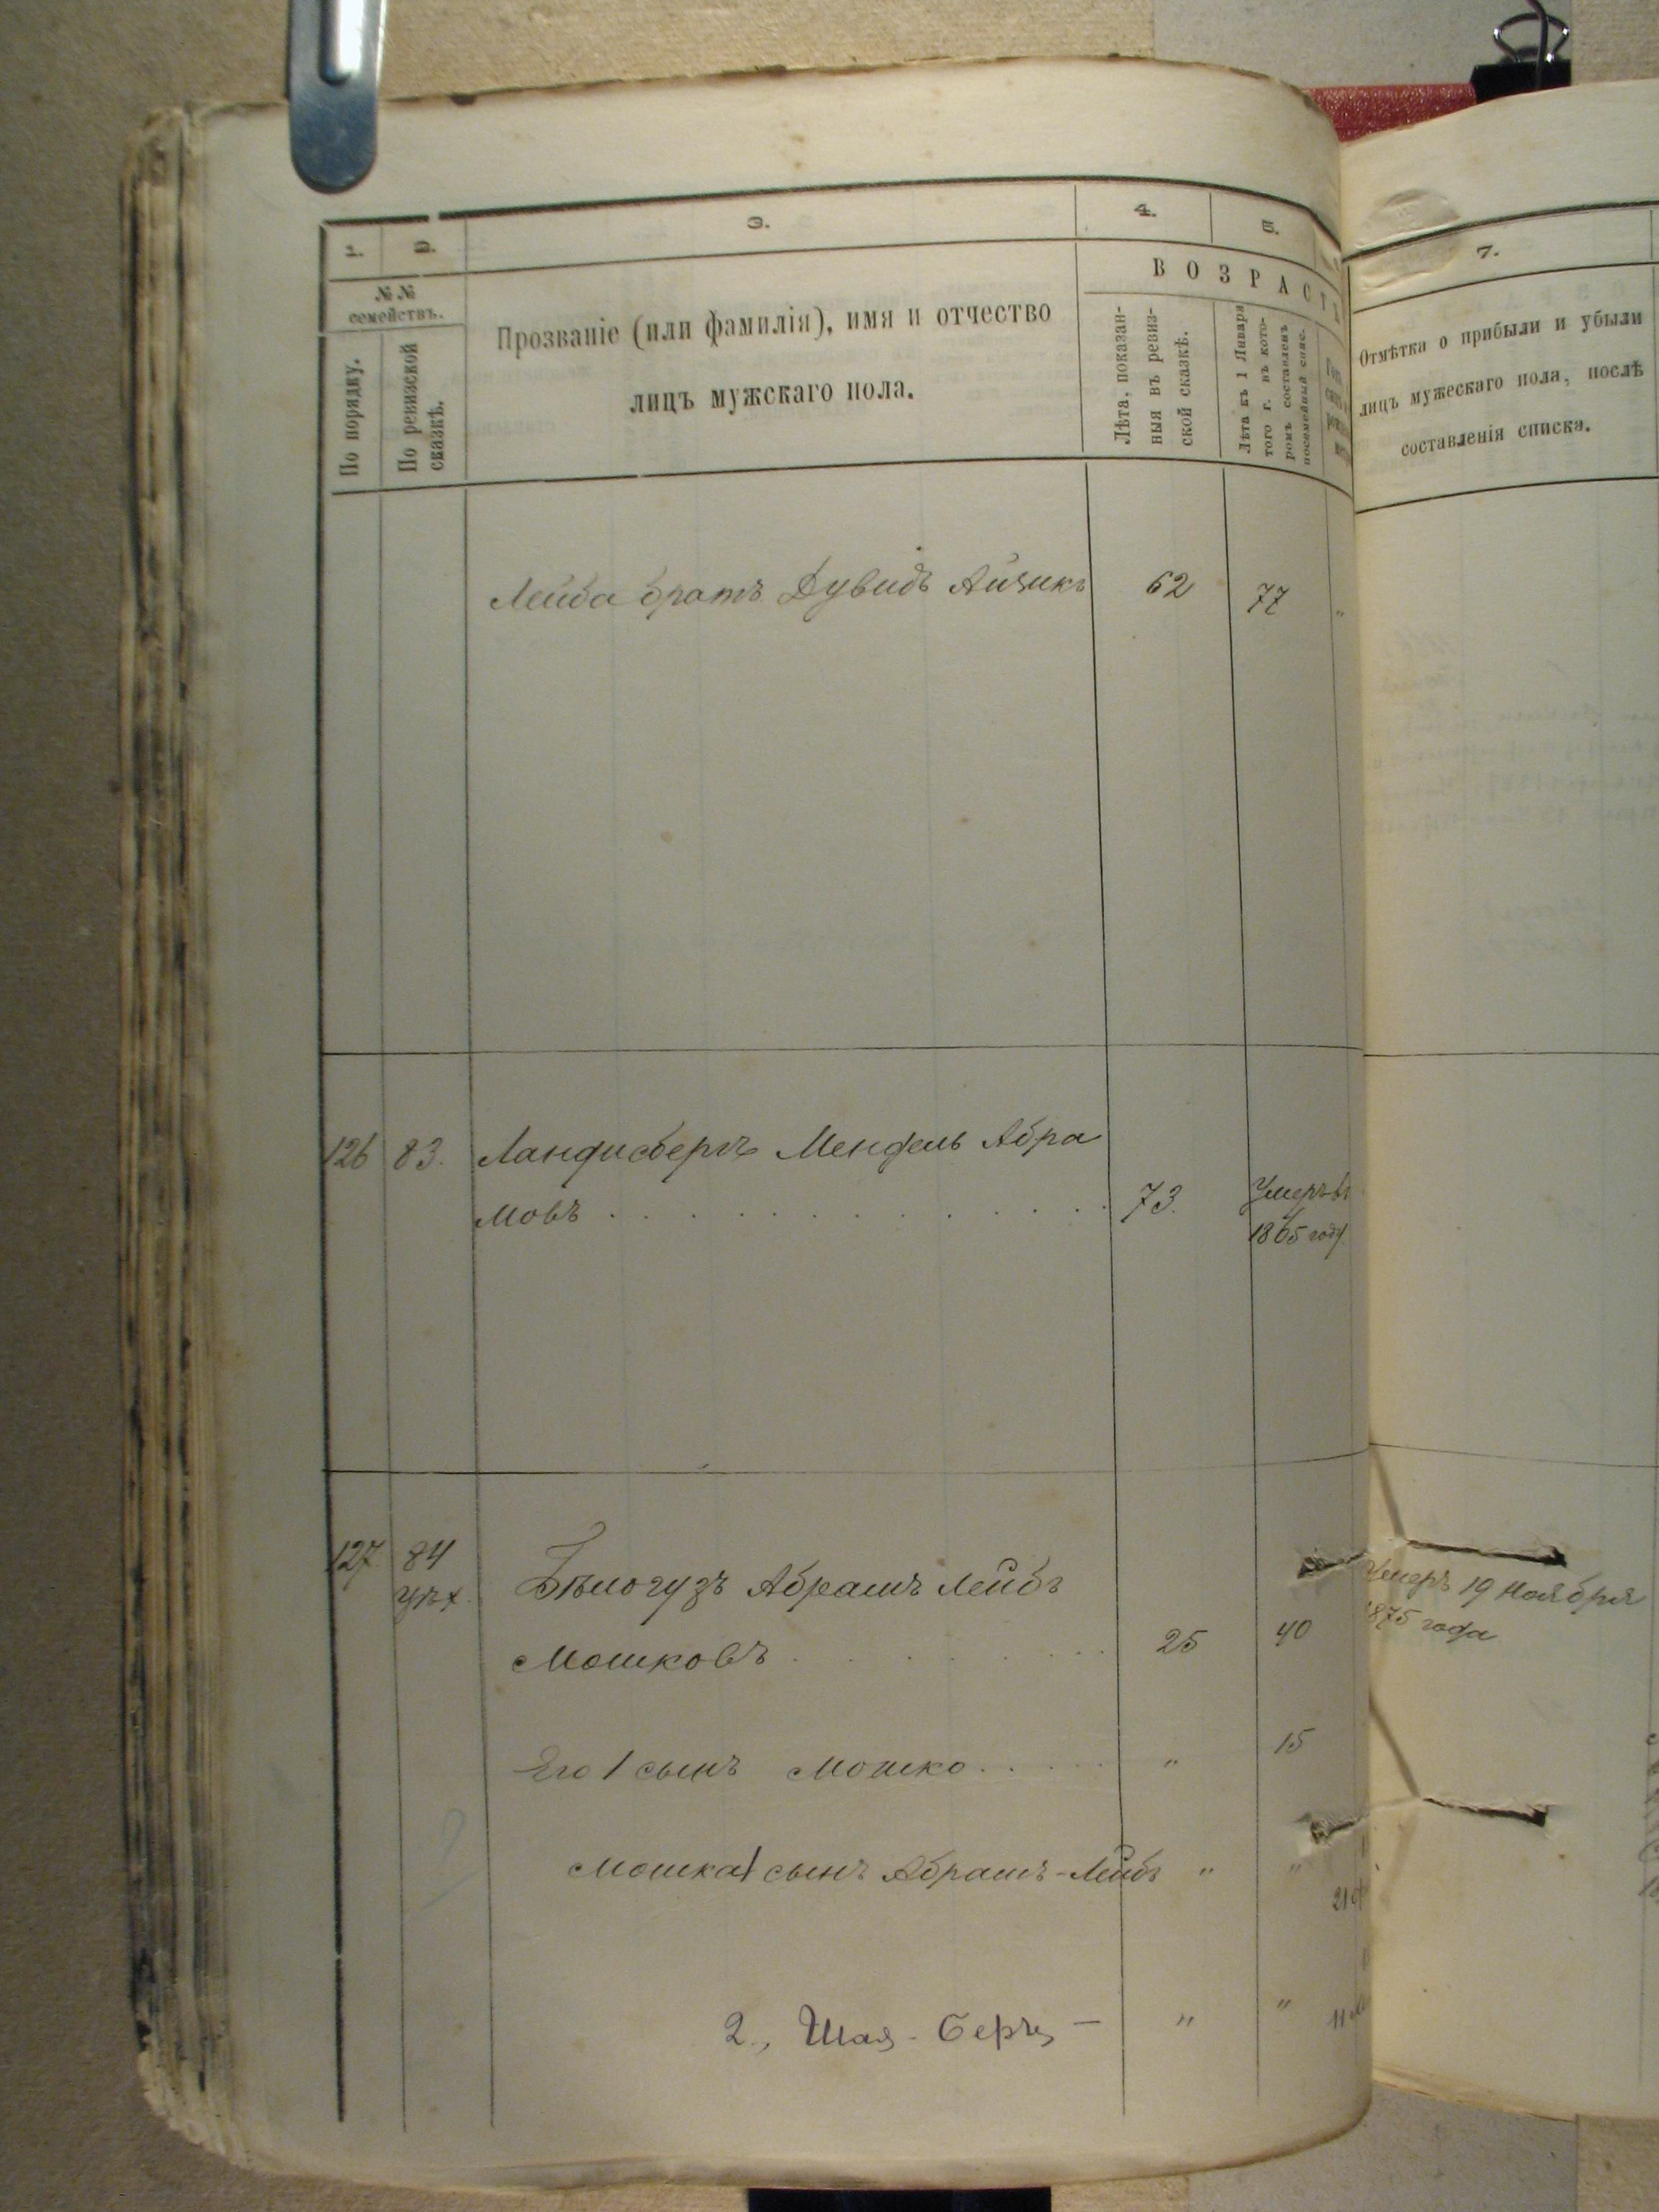 1.
2.
3.
4.
5.
7.
№ № семействъ.
По порядку.
По ревизской сказкѣ.
Прозваніе (или фамилія), имя и отчество
лицъ мужскаго пола.
ВОЗРАСТЪ
Лѣта, показан-
ныя въ ревиз-
ской сказкѣ.
Лѣта къ 1 Января
того г. въ кото-
ромъ составленъ
посемейный спис.
Отмѣтка о прибыли и убыли
лицъ мужескаго пола, послѣ
составленія списка.
Лейба братъ Дувидъ Айзикъ 62 77 "
126 83. Ландисбергъ Мендель Абра
мовъ 73. Умеръ въ
1865 году
127 84 Бѣлогузъ Абрамъ Лейбъ
Мошковъ 25 40
Умеръ 19 Ноября
1875 года
Его 1 сынъ Мошко " 15
Мошка 1 сынъ Абрамъ-Лейбъ " "
21
2., Шая-Беръ — " " 11